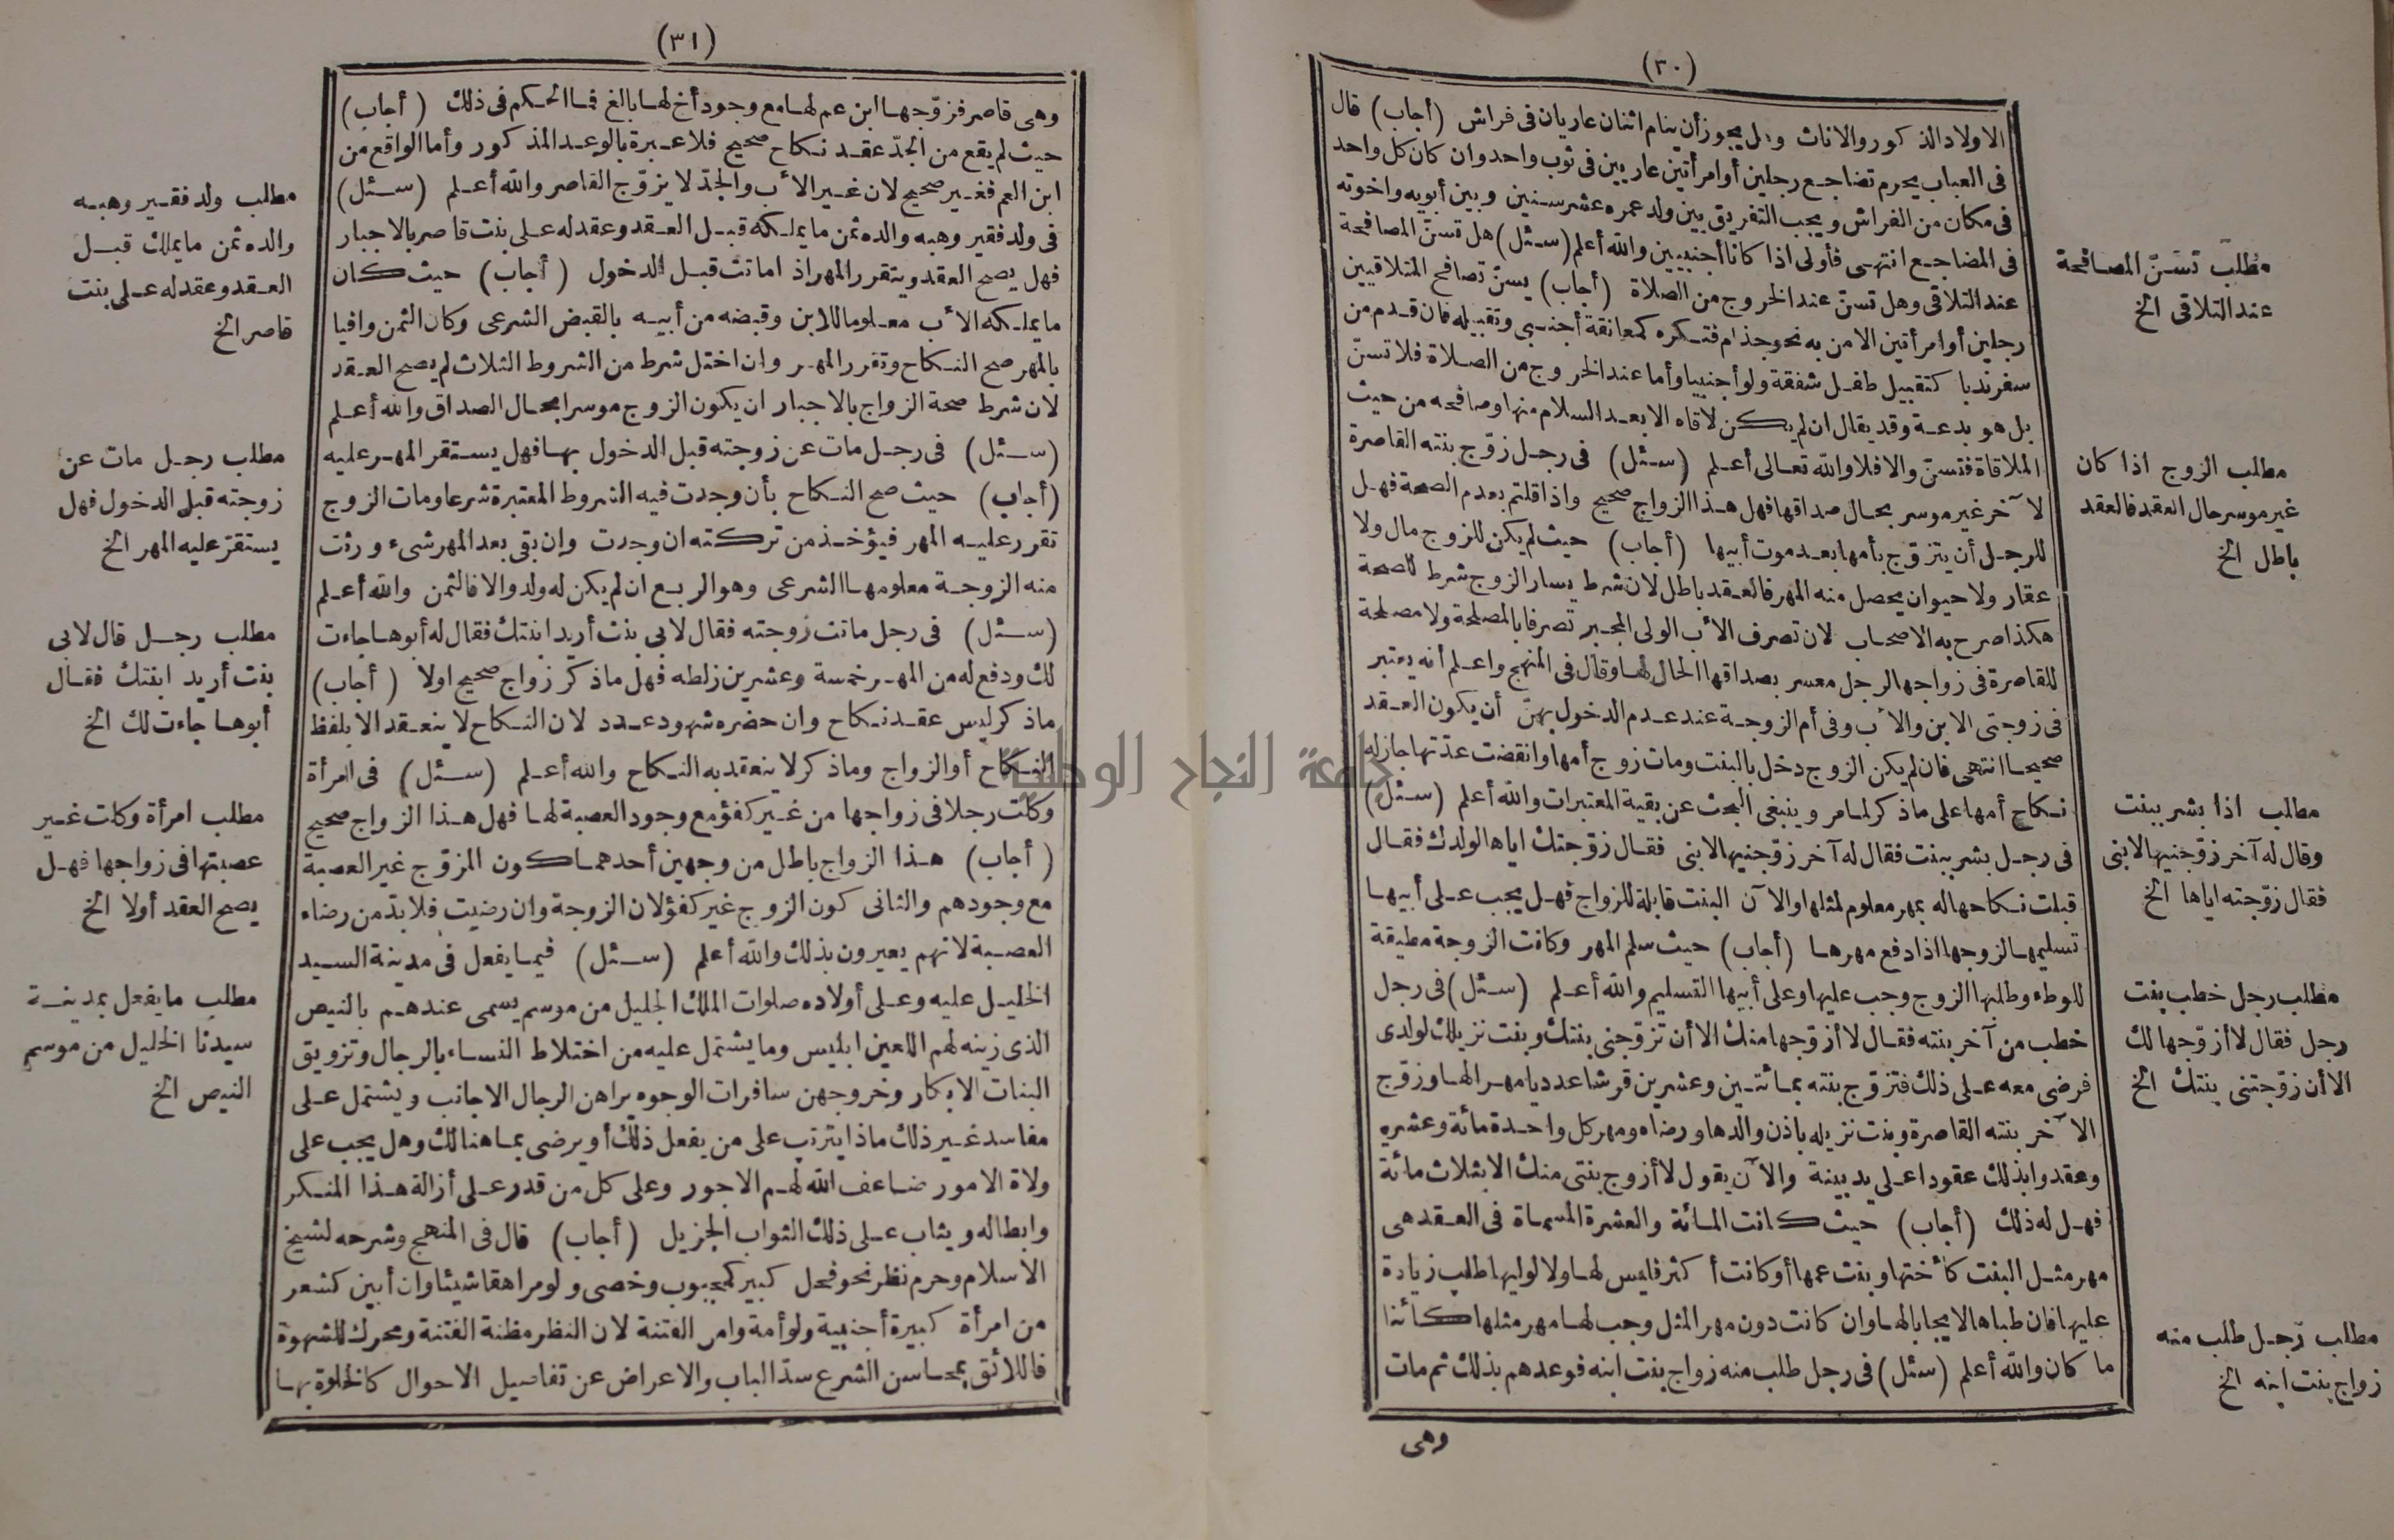 (٣٠)
الاولاد الذكور والاناث وهل يجوز أن ينام اثنان عاريان فى فراش (أجاب) قال
فى العباب يحرم تضاجع رجلين أو امرأتين عاريين فى ثوب واحد وان كان كل واحد
فى مكان من الفراش ويجب التفريق بين ولد عمره عشر سنين وبين أبويه واخوته
فى المضاجع انتهى فأولى اذا كانا أجنبيين والله أعلم (سئل) هل تسنّ المصافحة
عند التلاقى وهل تسنّ عند الخروج من الصلاة (أجاب) يسنّ تصافح المتلاقيين
رجلين أو امرأتين الا من به نحو جذام فتكره كمعانقة أجنبى وتقبيله فان قدم من
سفر ندبا كتقبيل طفل شفقة ولو أجنبيا وأما عند الخروج من الصلاة فلا تسنّ
بل هو بدعة وقد يقال ان لم يكن لاقاه الا بعد السلام منها وصافحه من حيث
الملاقاة فتسنّ والا فلا والله تعالى أعلم (سئل) فى رجل زوّج بنته القاصرة
لآخر غير موسر بحال صداقها فهل هذا الزواج صحيح واذا قلتم بعدم الصحة فهل
للرجل أن يتزوّج بأمها بعد موت أبيها (أجاب) حيث لم يكن للزوج مال ولا
عقار ولا حيوان يحصل منه المهر فالعقد باطل لان شرط يسار الزوج شرط للصحة
هكذا صرح به الاصحاب لان تصرف الأب الولى المجبر تصرفا بالمصلحة ولا مصلحة
للقاصرة فى زواجها الرجل معسر بصداقها الحال لها وقال فى المنهج واعلم أنه يعتبر
فى زوجتى الابن والأب وفى أم الزوجة عند عدم الدخول بهنّ أن يكون العقد
صحيحا انتهى فان لم يكن الزوج دخل بالبنت ومات زوج أمها وانقضت عدّتها جاز له
نكاح أمها على ما ذكر لما مر وينبغى البحث عن بقية المعتبرات والله أعلم (سئل)
فى رجل بشر ببنت فقال له آخر زوّجنيها لابنى فقال زوّجتك اياها لولدك فقال
قبلت نكاحها له بمهر معلوم لمثلها والآن البنت قابلة للزواج فهل يجب على أبيها
تسليمها لزوجها اذا دفع مهرها (أجاب) حيث سلم المهر وكانت الزوجة مطيقة
للوطء وطلبها الزوج وجب عليها وعلى أبيها التسليم والله أعلم (سئل) فى رجل
خطب من آخر بنته فقال لا أزوّجها منك الا أن تزوّجنى بنتك وبنت نزيلك لولدى
فرضى معه على ذلك فتزوّج بنته بمائتين وعشرين قرشا عدديا مهرا لها وزوّج
الآخر بنته القاصرة وبنت نزيله باذن والدها ورضاه ومهر كل واحدة مائة وعشره
وعقدوا بذلك عقودا على يد بينة والآن يقول لا أزوج بنتى منك الا بثلاث مائة
فهل له ذلك (أجاب) حيث كانت المائة والعشرة المسماة فى العقد هى
مهر مثل البنت كأختها وبنت عمها أو كانت أكثر فليس لها ولا لوليها طلب زيادة
عليها فان طلباها لا يجابا لها وان كانت دون مهر المثل وجب لها مهر مثلها كائنا
ما كان والله أعلم (سئل) فى رجل طلب منه زواج بنت ابنه فوعدهم بذلك ثم مات
وهى
مطلب تسنّ المصافحة
عند التلاقى الخ
مطلب الزوج اذا كان
غير موسر حال العقد فالعقد
باطل الخ
مطلب اذا بشر ببنت
وقال له آخر زوّجنيها لابنى
فقال زوّجته اياها الخ
مطلب رجل خطب بنت
رجل فقال لا أزوّجها لك
الا أن زوّجتنى بنتك الخ
مطلب رجل طلب منه
زواج بنت ابنه الخ
(٣١)
وهى قاصر فزوّجها ابن عم لها مع وجود أخ لها بالغ فما الحكم فى ذلك (أجاب)
حيث لم يقع من الجدّ عقد نكاح صحيح فلا عبرة بالوعد المذكور وأما الواقع من
ابن العم فغير صحيح لان غير الأب والجدّ لا يزوّج القاصر والله أعلم (سئل)
فى ولد فقير وهبه والده ثمن ما يملكه قبل العقد وعقد له على بنت قاصر بالاجبار
فهل يصح العقد ويتقرر المهر اذا ماتت قبل الدخول (أجاب) حيث كان
ما يملكه الأب معلوما للابن وقبضه من أبيه بالقبض الشرعى وكان الثمن وافيا
بالمهر صح النكاح وتقرر المهر وان اختل شرط من الشروط الثلاث لم يصح العقد
لان شرط صحة الزواج بالاجبار ان يكون الزوج موسرا بحال الصداق والله أعلم
(سئل) فى رجل مات عن زوجته قبل الدخول بها فهل يستقر المهر عليه
(أجاب) حيث صح النكاح بأن وجدت فيه الشروط المعتبرة شرعا ومات الزوج
تقرر عليه المهر فيؤخذ من تركته ان وجدت وان بقى بعد المهر شىء ورثت
منه الزوجة معلومها الشرعى وهو الربع ان لم يكن له ولد والا فالثمن والله أعلم
(سئل) فى رجل ماتت زوجته فقال لابى بنت أريد ابنتك فقال له أبوها جاءت
لك ودفع له من المهر خمسة وعشرين زلطه فهل ما ذكر زواج صحيح اولا (أجاب)
ما ذكر ليس عقد نكاح وان حضره شهود عدد لان النكاح لا ينعقد الا بلفظ
النكاح أو الزواج وما ذكر لا ينعقد به النكاح والله أعلم (سئل) فى امرأة
وكلت رجلا فى زواجها من غير كفؤ مع وجود العصبة لها فهل هذا الزواج صحيح
(أجاب) هذا الزواج باطل من وجهين أحدهما كون المزوّج غير العصبة
مع وجودهم والثانى كون الزوج غير كفؤ لان الزوجة وان رضيت فلا بدّ من رضاء
العصبة لانهم يعيرون بذلك والله أعلم (سئل) فيما يفعل فى مدينة السيد
الخليل عليه وعلى أولاده صلوات الملك الجليل من موسم يسمى عندهم بالنيص
الذى زينه لهم اللعين ابليس وما يشتمل عليه من اختلاط النساء بالرجال وتزويق
البنات الابكار وخروجهن سافرات الوجوه يراهن الرجال الاجانب ويشتمل على
مفاسد غير ذلك ماذا يترتب على من يفعل ذلك أو يرضى بما هنالك وهل يجب على
ولاة الامور ضاعف الله لهم الاجور وعلى كل من قدر على أزالة هذا المنكر
وابطاله ويثاب على ذلك الثواب الجزيل (أجاب) قال فى المنهج وشرحه لشيخ
الاسلام وحرم نظر نحو فحل كبير كمجبوب وخصى ولو مراهقا شيئا وان أبين كشعر
من امرأة كبيرة أجنبية ولو أمة وامن الفتنة لان النظر مظنة الفتنة ومحرك للشهوة
فاللائق بمحاسن الشرع سدّ الباب والاعراض عن تفاصيل الاحوال كالخلوة بها
مطلب ولد فقير وهبه
والده ثمن ما يملك قبل
العقد وعقد له على بنت
قاصر الخ
مطلب رجل مات عن
زوجته قبل الدخول فهل
يستقرّ عليه المهر الخ
مطلب رجل قال لابى
بنت أريد ابنتك فقال
أبوها جاءت لك الخ
مطلب امرأة وكلت غير
عصبتها فى زواجها فهل
يصح العقد أولا الخ
مطلب ما يفعل بمدينة
سيدنا الخليل من موسم
النيص الخ
جامعة النجاح الوطنية